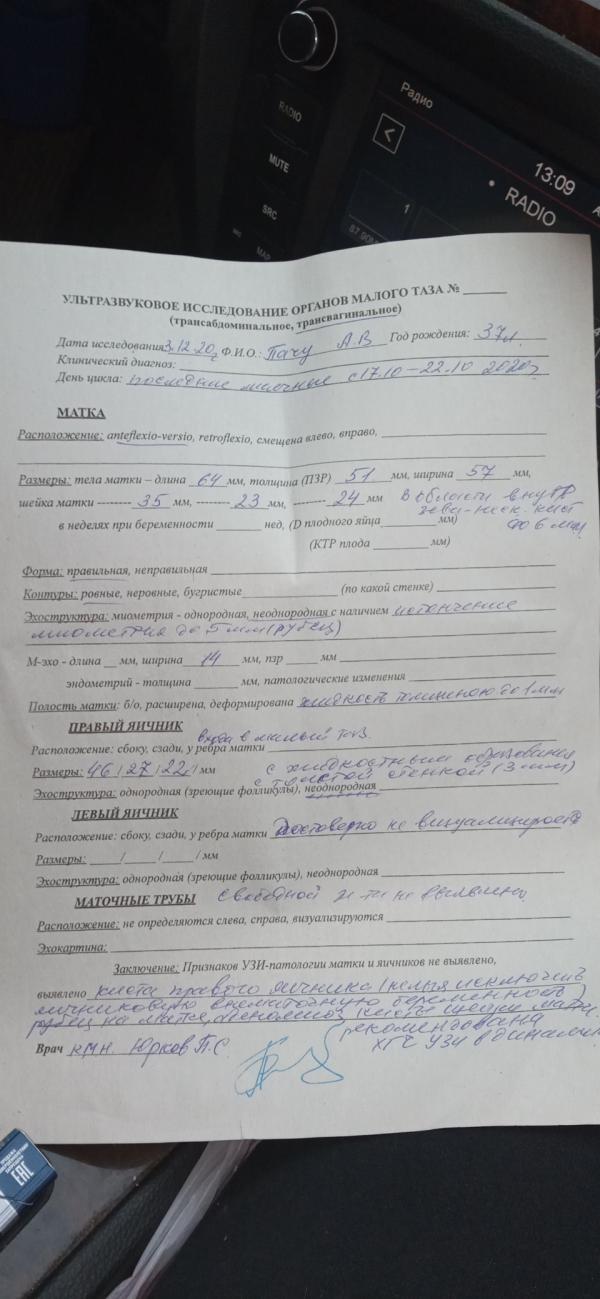 Радио
RADIO
MUTE
13:09
• RADIO
SRC
1
87.90
MAP
УЛЬТРАЗВУКОВОЕ ИССЛЕДОВАНИЕ ОРГАНОВ МАЛОГО ТАЗА №
(трансабдоминальное, трансвагинальное)
Дата исследования 3.12.20г Ф.И.О.: Пачу А.В Год рождения: 37л.
Клинический диагноз:
День цикла: последние месячные с 17.10 – 22.10 2020г
МАТКА
Расположение: anteflexio-versio, retroflexio, смещена влево, вправо,
Размеры: тела матки – длина 64 мм, толщина (ПЗР) 51 мм, ширина 57 мм,
шейка матки -------- 35 мм, -------- 23 мм, -------- 24 мм В области внутр
зева - неск. кист
в неделях при беременности нед, (D плодного яйца мм) до 6 мм
(КТР плода мм)
Форма: правильная, неправильная
Контуры: ровные, неровные, бугристые (по какой стенке)
Эхоструктура: миометрия - однородная, неоднородная с наличием истончение
миометрия до 5 мм (рубец)
М-эхо - длина мм, ширина 14 мм, пзр мм
эндометрий - толщина мм, патологические изменения
Полость матки: б/о, расширена, деформирована жидкость толщиною до 1 мм
ПРАВЫЙ ЯИЧНИК
входа в малый таз
Расположение: сбоку, сзади, у ребра матки
с жидкостным образования
Размеры: 46 / 27 / 22 / мм с толстой стенкой (3 мм)
Эхоструктура: однородная (зреющие фолликулы), неоднородная
ЛЕВЫЙ ЯИЧНИК
Расположение: сбоку, сзади, у ребра матки достоверно не визуализируется
Размеры: / / / мм
Эхоструктура: однородная (зреющие фолликулы), неоднородная
МАТОЧНЫЕ ТРУБЫ свободной ж-ти не выявлено
Расположение: не определяются слева, справа, визуализируются
Эхокартина:
Заключение: Признаков УЗИ-патологии матки и яичников не выявлено,
выявлено киста правого яичника (нельзя исключить
яичниковую внематочную беременность)
рубец на матке, аденомиоз, кисты шейки матки.
рекомендована
Врач кмн. Юрков П.С. ХГЧ УЗИ в динамике
EAC